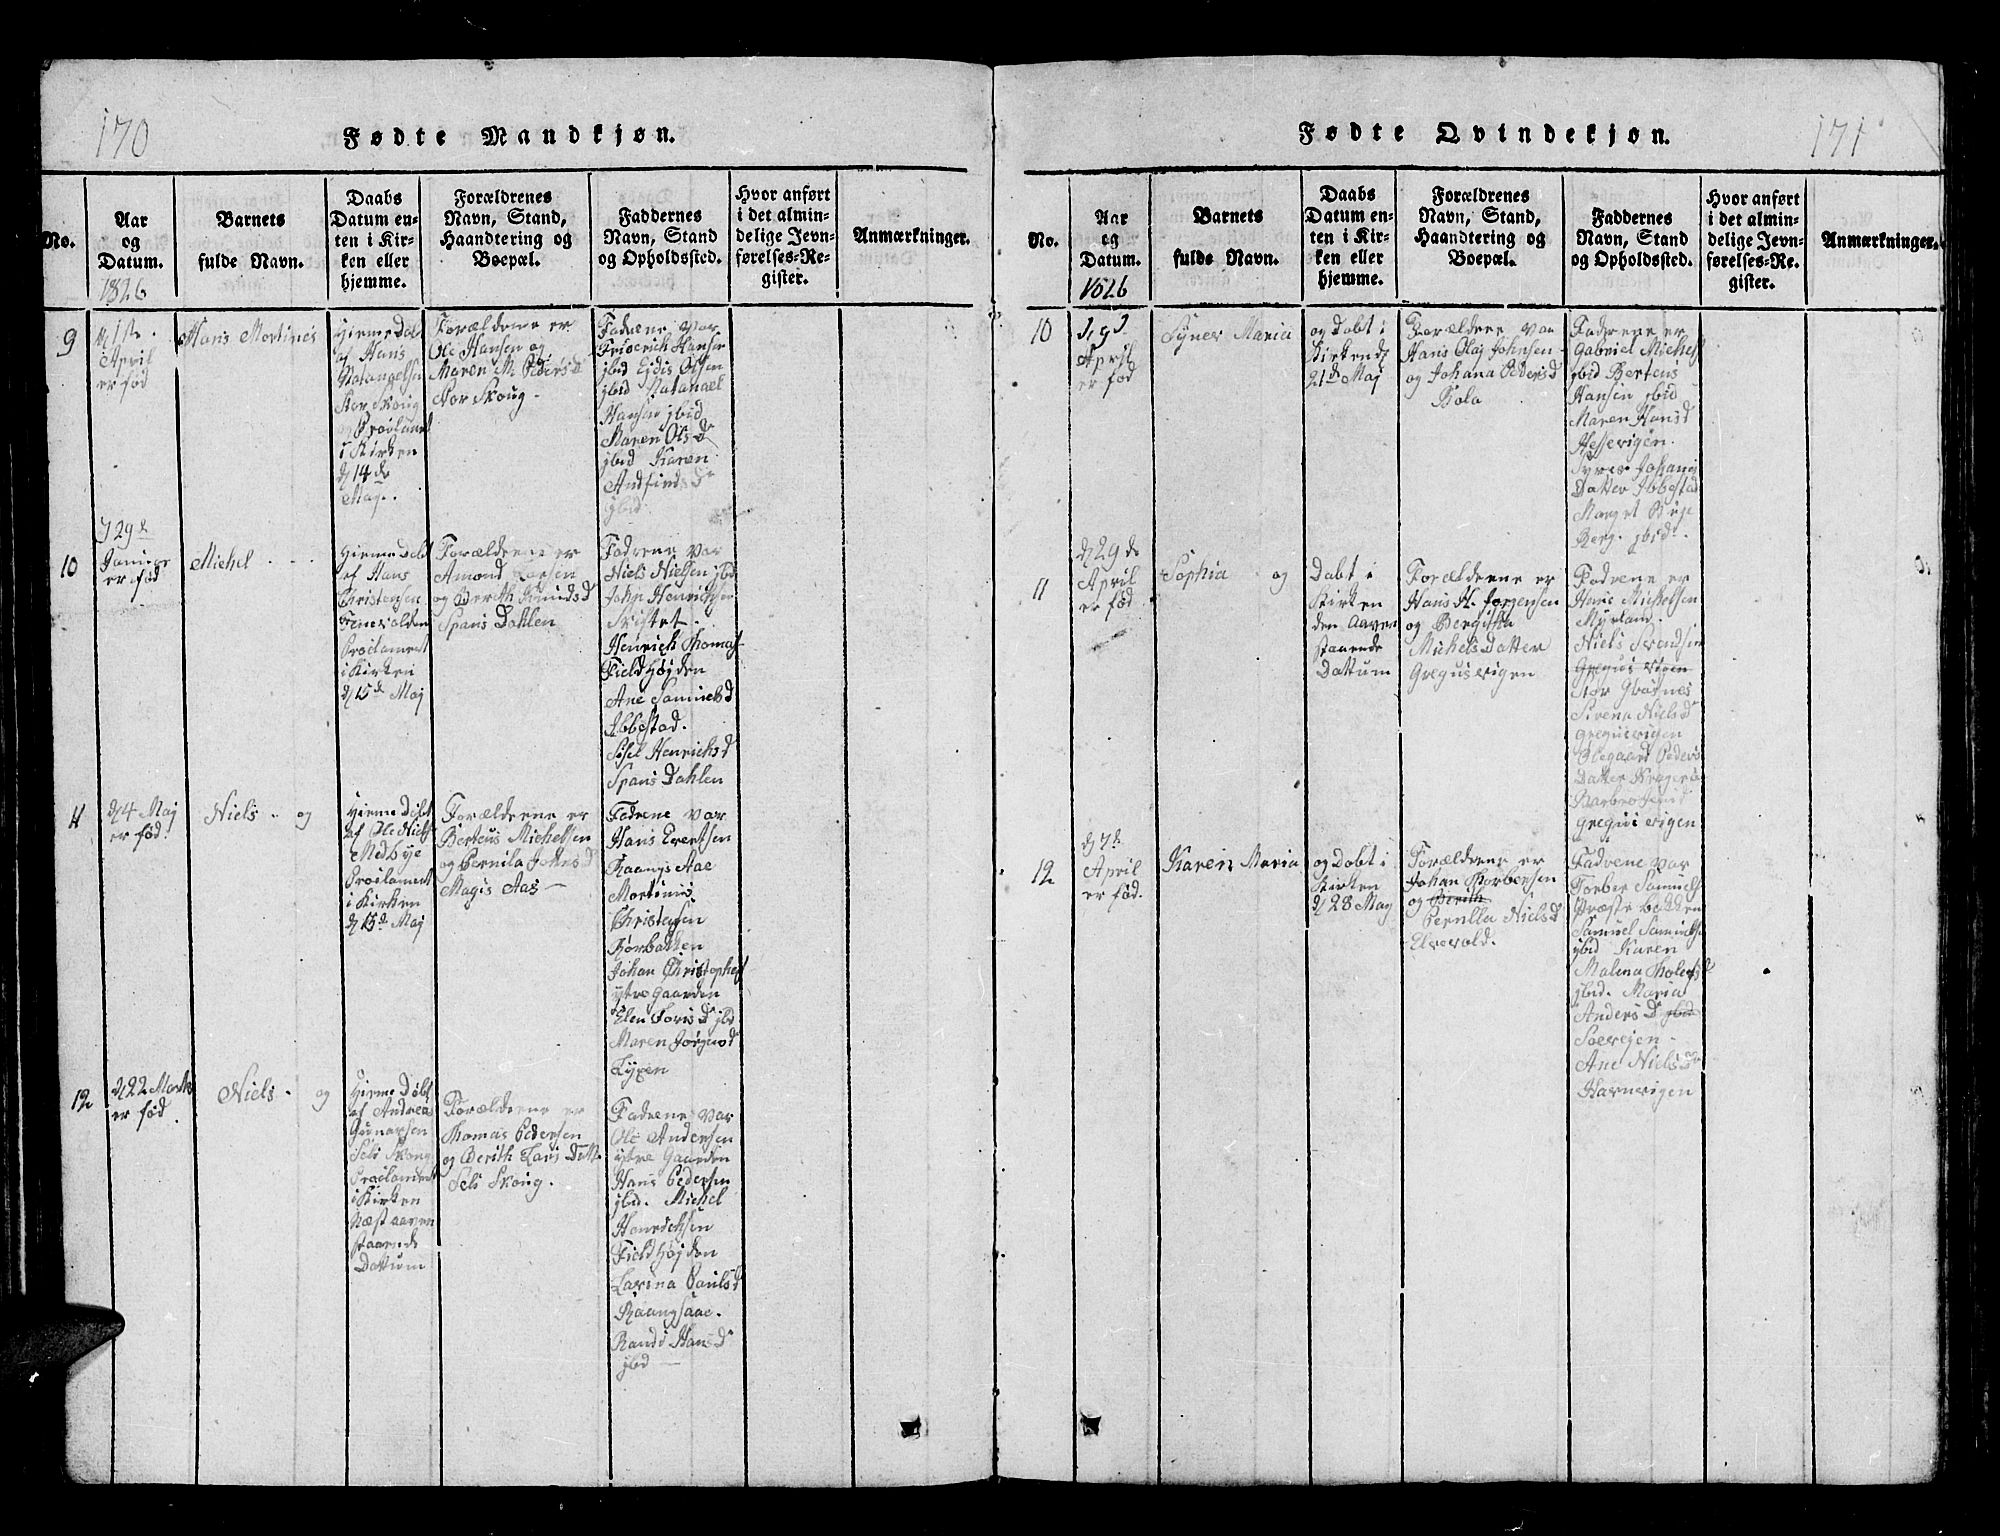 170
Fødte Mandkjøn.
No.
Aar
og
Datum.
1826
Barnets
fulde Navn.
Daabs
Datum en-
ten i Kir-
ken eller
hjemme.
Forældrenes
Navn, Stand,
Haandtering og
Boepæl.
Faddernes
Navn, Stand
og Opholdssted.
Hvor anført
i det almin-
delige Jevn-
førelses-Re-
gister.
Anmærkninger.
9
April
er fød
Hans Mortines
af Hans
Natanaelsen
Stor Skoug
i Kirken
d 14 de
Maj.
Forældrene er
Ole Hansen og
Maren M. Peders D
Stor Skoug.
Fadrene var
Friderich Hansen
jbid Ejdis Olsen
jbid Natanael
Hansen jbid
Maren Ols D
jbid Karen
Andfind D
jbid
10
er fød
Michel
af Hans
Christensen
Proclameret
i Kirken
d 15 de Maj
Forældrene er
Amond Larsen
og Berith Knuds D
Spans Dahlen
Fadrene var
Niels Nielsen jbid
Henrich Thomas
Fieldhøjden
Ane Samuels D
Jbbestad.
Sisel Henrichs D
Spans Dahlen
11
d 4 Maj
er fød.
Niels - og
Hieme Døbt
af Ole Niels
Medbye
Proclameret
i Kirken
d 15 de Maj
Forældrene er
Berteus Michelsen
og Pernila Johns D
Magis Aas
Fadrene var
Hans Evertsen
Raangs Aae
Mortinus
Christensen
Rørbakken
Johan Christophers
ytre Gaarden
Elen Joris D jbid
Maren
12
d 22 Marts
er fød.
Niels - og
Hieme Døbt
af Andreas
Gunarsen
Seli Skoug
Proclameret
i Kirken
Næst aaven
staaende
Dattum
Forældrene er
Thomas Pedersen
og Berith Lars Datt.
Seli Skoug.
Fadrene var
Ole Andersen
ytre Gaarden
Hans Pedersen
jbid. Michel
Henrichsen
Fieldhøjden
Larina Pauls D
Raangsaae.
Randi Hans D
jbid
Fødte Qvindekjøn.
171
No.
Aar
og
Datum.
1826
Barnets
fulde Navn.
Daabs
Datum en-
ten i Kir-
ken eller
hjemme.
Forældrenes
Navn, Stand,
Haandtering og
Boepæl.
Faddernes
Navn, Stand
og Opholdssted.
Hvor anført
i det almin-
delige Jevn-
førelses-Re-
gister.
Anmærkninger.
10
April
er fød
Synev Maria
og Døbt i
Kirken d
21 de Maj
Forældrene var
Hans Olaj Johnsen
og Johana Peders D
Bola
Fadrene er
Gabriel Michels
jbid Berteus
Hansen jbid
Maren Hans D
Hessevigen.
Datter Jbbestad
jbid.
11
d 29 de
April
er fød
Sophia og
Døbt i
Kirken
den aaven
staaende
Dattum
Forældrene er
Hans H. Jørgensen
og Bergitta
Michels Datter
Gregusvigen
Fadrene er
Hans Michelsen
Myrland.
Niels
Gregus vigen
Sirena Niels D
Gregusvigen
Olegaard Peders
Datter
Gregus vigen
12
d 7 de
April
er fød.
Karen Maria
og Døbt i
Kirken
d 28 Maj
Forældrene er
Johan Thorbersen
og Berith
Pernilla Niels D
Elvevold.
Fadrene var
Torber Samuels
Præste bakken
Samuel Samuels
jbid Karen
Malena
jbid. Maria
Anders D jbid
Ane Niels D
Havnevigen